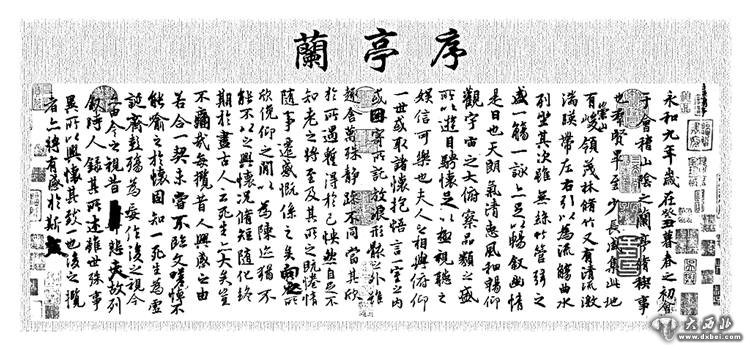 蘭亭序
永和九年歲在癸丑暮春之初會
于會稽山陰之蘭亭脩稧事
也羣賢畢至少長咸集此地
有崇山峻領茂林脩竹又有清流激
湍暎帶左右引以為流觴曲水
列坐其次雖無絲竹管弦之
盛一觴一詠亦足以暢叙幽情
是日也天朗氣清惠風和暢仰
觀宇宙之大俯察品類之盛
所以遊目騁懷足以極視聽之
娛信可樂也夫人之相與俯仰
一世或取諸懷抱悟言一室之內
或因寄所託放浪形骸之外雖
趣舍萬殊靜躁不同當其欣
於所遇蹔得於己怏然自足不
知老之將至及其所之既惓情
隨事遷感慨係之矣向之所
欣俛仰之閒以為陳迹猶不
能不以之興懷況脩短隨化終
期於盡古人云死生亦大矣豈
不痛哉每攬昔人興感之由
若合一契未嘗不臨文嗟悼不
能喻之於懷固知一死生為虛
誕齊彭殤為妄作後之視今
亦由今之視昔悲夫故列
叙時人錄其所述雖世殊事
異所以興懷其致一也後之攬
者亦將有感於斯
大西北
www.dxbei.com